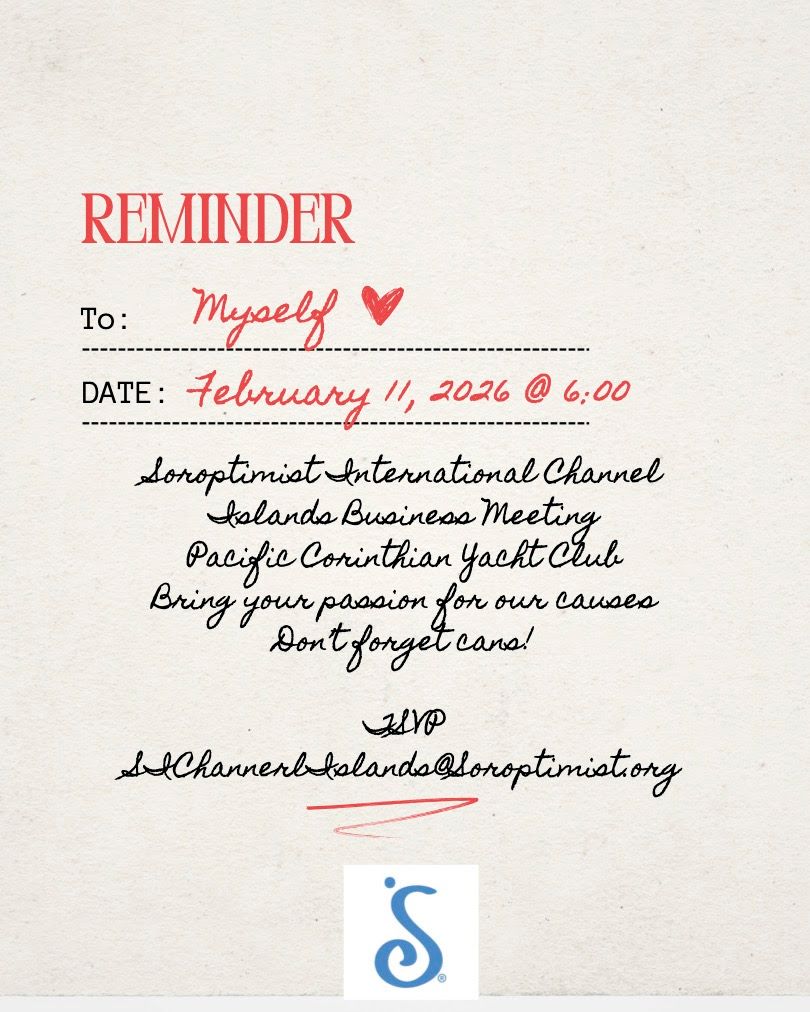 REMINDER
To: Myself
DATE: February 11, 2026 @ 6:00
Soroptimist International Channel
Islands Business Meeting
Pacific Corinthian Yacht Club
Bring your passion for our causes
Don't forget cans!
FSVP
SIChannerlIslands@Soroptimist.org
S®